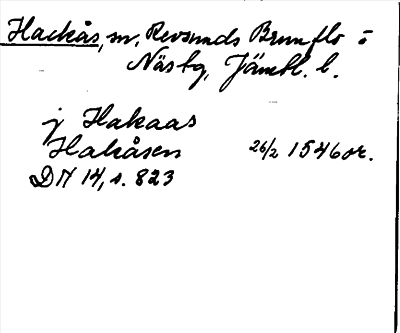 Hackås, sn, Revsunds Brunflo o
Näs tg, Jämtl. l.
j Hakaas
Hakåsen 26/2 1546 or.
DN 14, s. 823